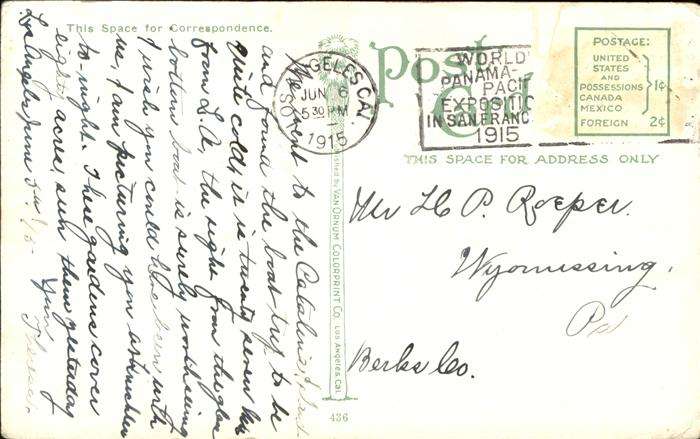 This Space for Correspondence.
Los Angeles June 5th /15.
We went to the Catalina Island
and found the boat trip to be
quite cold, it is twenty seven
from L.A. the
bottom boat is surely worth seeing
I wish you could been with
us, I am picturing you
to-night. These gardens cover
eight acres, seen them yesterday
LOS ANGELES, CAL.
JUN 6
5 30 PM
1915
WORLD'S
PANAMA-
PACIFIC
EXPOSITION
IN SAN FRANC
1915
Post Card
POSTAGE:
UNITED
STATES
AND
POSSESSIONS
CANADA
MEXICO
1¢
FOREIGN 2¢
THIS SPACE FOR ADDRESS ONLY
Mr H. P. Roeper.
Wyomissing.
Pa
Berks Co.
Published by VAN ORNUM COLORPRINT CO., LOS ANGELES, CAL.
436